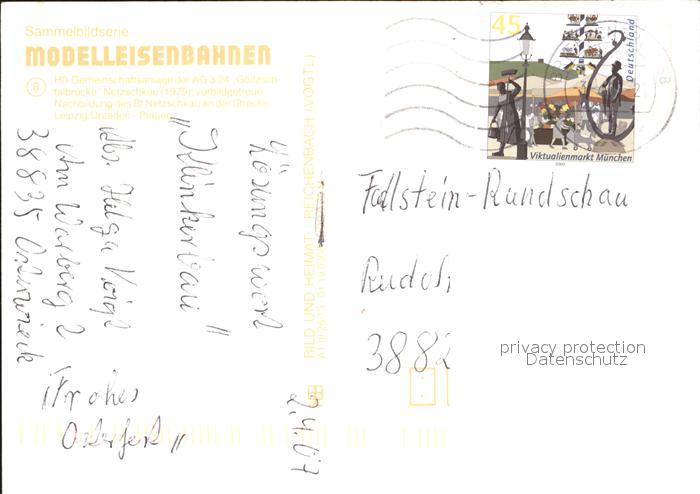 Sammelbildserie
MODELLEISENBAHNEN
8 HO-Gemeinschaftsanlage der AG 3/24 „Göltzsch-
talbrücke" Netzschkau (1979); vorbildgetreue
Nachbildung des Bf Netzschkau an der Strecke
Leipzig/Dresden - Plauen
BILD UND HEIMAT REICHENBACH (VOGTL)
45
Deutschland
Viktualienmarkt München
Lösungswort
"Klinkerbau"
Abs. Helga Voigt
Am Warberg 2
38835 Osterwieck
"Frohes
Osterfest"
2.4.07
Fallstein-Rundschau
Rudol
3882
privacy protection
Datenschutz